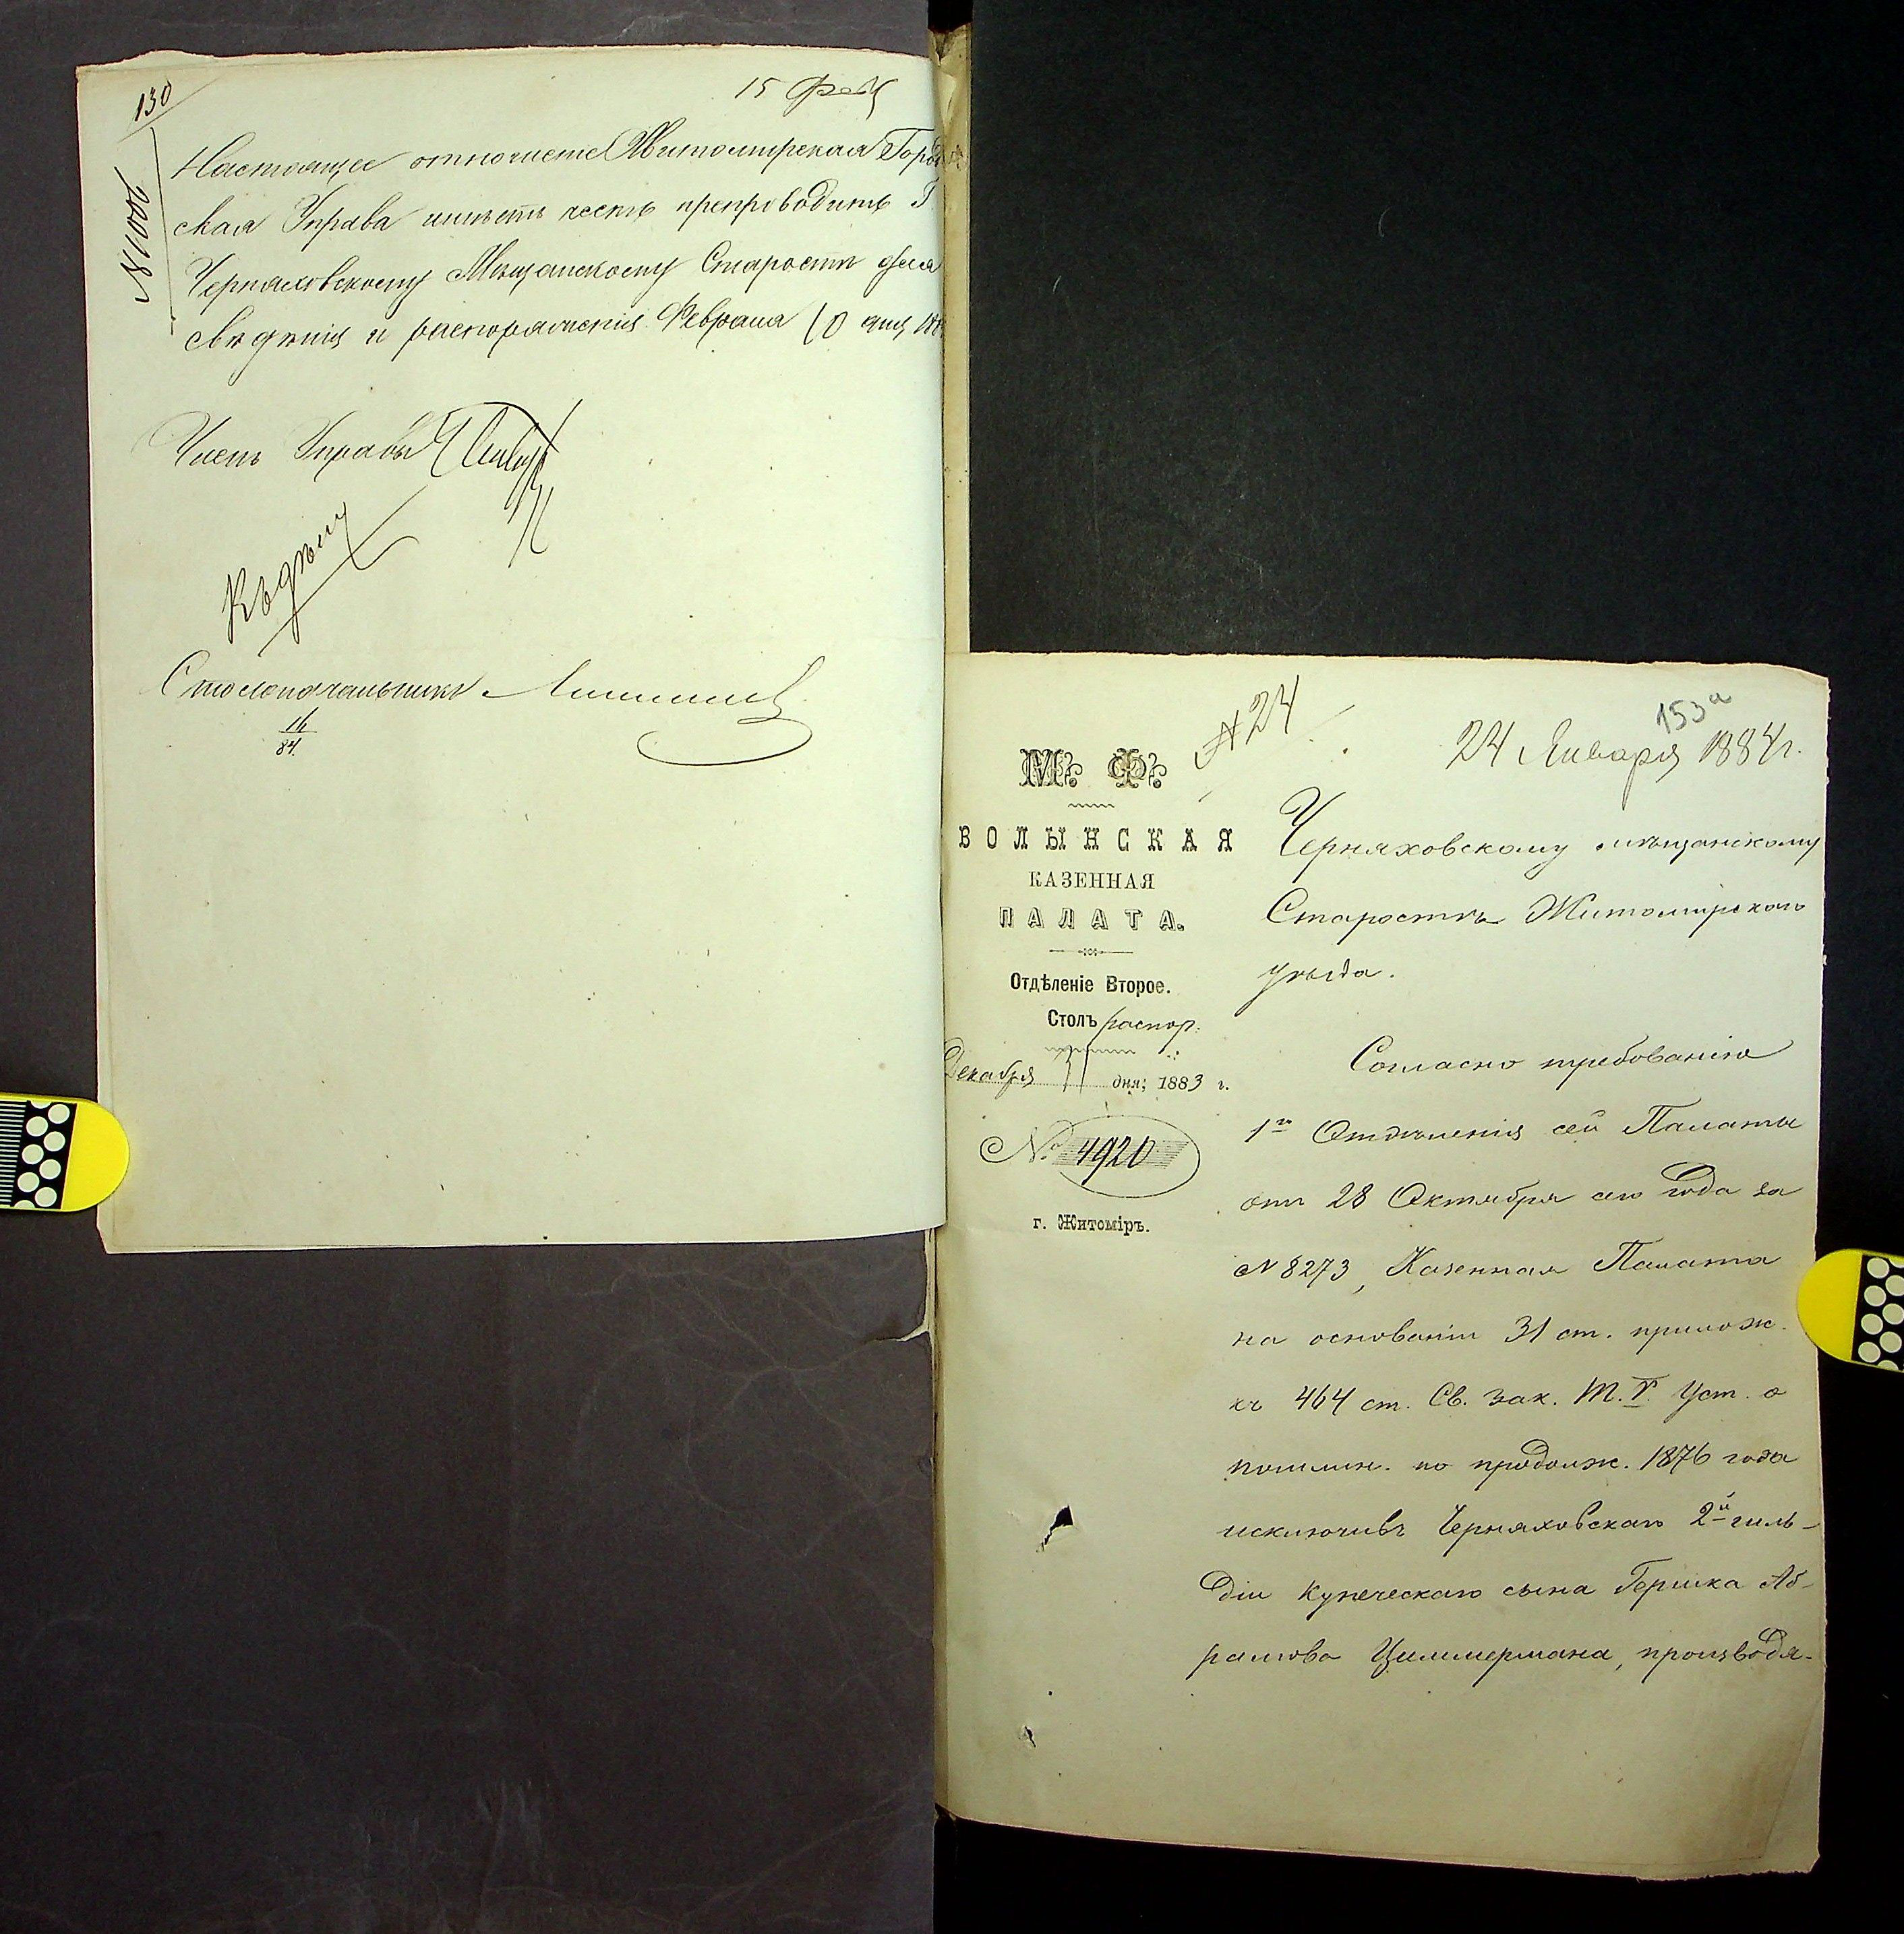 130
15 Фев
№ 1006
Настоящее отношение Житомирская Город
ская Управа имѣетъ честь препроводить Г.
Черняховскому Мѣщанскому Старостѣ для
свѣдѣнія и распоряженія. Февраля 10 дня 188
Членъ Управы
Къ дѣлу
Столоначальникъ
16
84.
№ 24
153а
24 Января 1884 г.
М. Ф.
ВОЛЫНСКАЯ
КАЗЕННАЯ
ПАЛАТА.
Отдѣленіе Второе.
Столъ распор.
Декабря дня; 1883 г.
№ 4920
г. Житоміръ.
Черняховскому мѣщанскому
Старостѣ Житомирскаго
уѣзда.
Согласно требованію
1го Отдѣленія сей Палаты
отъ 28 Октября сего года за
№ 8273, Казенная Палата
на основаніи 31 ст. прилож.
къ 464 ст. Св. зак. Т. V. Уст. о
пошлин. по продолж. 1876 года
исключивъ Черняховскаго 2й гиль-
діи купеческаго сына Гершка Аб-
рамова Циммермана, производя-